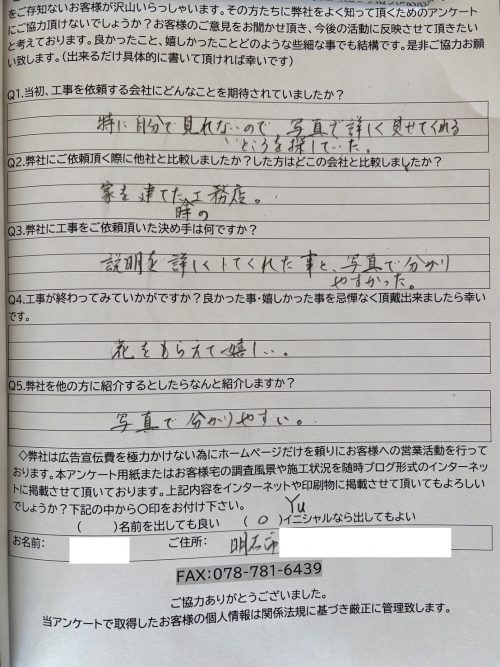 をご存知ないお客様が沢山いらっしゃいます。その方たちに弊社をよく知って頂くためのアンケート
にご協力頂けないでしょうか？お客様のご意見をお聞かせ頂き、今後の活動に反映させて頂きたい
と考えております。良かったこと、嬉しかったことどのような些細な事でも結構です。是非ご協力お願
い致します。（出来るだけ具体的に書いて頂ければ幸いです）
Q1.当初、工事を依頼する会社にどんなことを期待されていましたか？
特に自分で見れないので 写真で詳しく見せてくれる
ところを探していた。
Q2.弊社にご依頼頂く際に他社と比較しましたか？した方はどこの会社と比較しましたか？
家を建てた時の工務店。
Q3.弊社に工事をご依頼頂いた決め手は何ですか？
説明を詳しくしてくれた事と、写真で分かり
やすかった。
Q4.工事が終わってみていかがですか？良かった事・嬉しかった事を忌憚なく頂戴出来ましたら幸い
です。
花をもらえて嬉しい。
Q5.弊社を他の方に紹介するとしたらなんと紹介しますか？
写真で分かりやすい。
◇弊社は広告宣伝費を極力かけない為にホームページだけを頼りにお客様への営業活動を行って
おります。本アンケート用紙またはお客様宅の調査風景や施工状況を随時ブログ形式のインターネッ
トに掲載させて頂いております。上記内容をインターネットや印刷物に掲載させて頂いてもよろしい
でしょうか？下記の中から〇印をお付け下さい。 Yu
（　）名前を出しても良い （ ○ ）イニシャルなら出してもよい
お名前： ご住所： 明石市
FAX：078-781-6439
ご協力ありがとうございました。
当アンケートで取得したお客様の個人情報は関係法規に基づき厳正に管理致します。